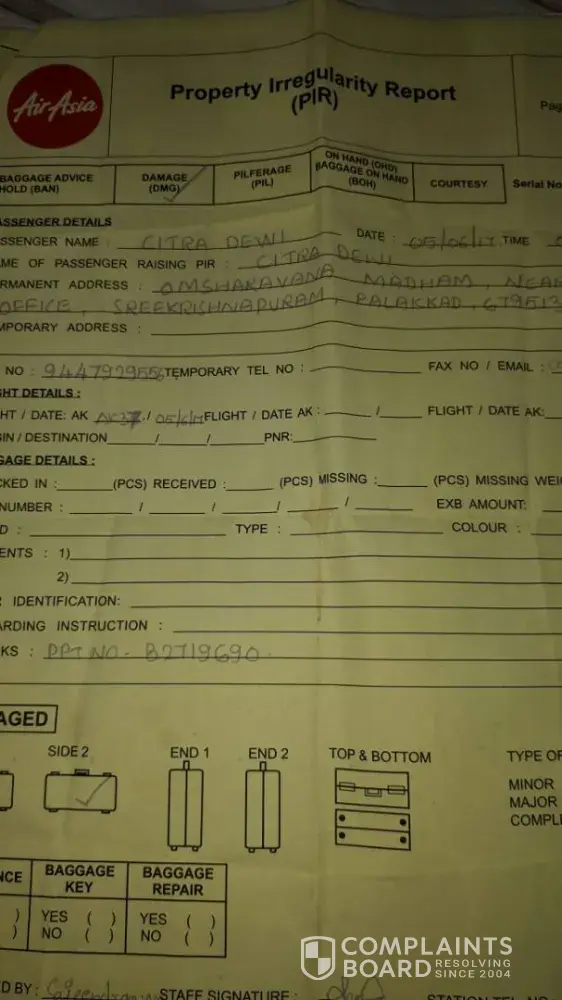 AirAsia
Property Irregularity Report
(PIR)
Pag
BAGGAGE ADVICE
HOLD (BAN)
DAMAGE
(DMG)
PILFERAGE
(PIL)
ON HAND (OHD)
BAGGAGE ON HAND
(BOH)
COURTESY
Serial No
ASSENGER DETAILS
SSENGER NAME : CITRA DEWI DATE : 05/06/17 TIME
ME OF PASSENGER RAISING PIR : CITRA DEWI
RMANENT ADDRESS : OMSHARAVANA MADHAM, NEAR
OFFICE, SREEKRISHNAPURAM, PALAKKAD, 679513
MPORARY ADDRESS :
NO : 9447929556 TEMPORARY TEL NO : FAX NO / EMAIL :
GHT DETAILS :
HT / DATE: AK / 05/6/17 FLIGHT / DATE AK : / FLIGHT / DATE AK:
GIN / DESTINATION / / PNR:
GAGE DETAILS :
CKED IN : (PCS) RECEIVED : (PCS) MISSING : (PCS) MISSING WEI
NUMBER : / / / / EXB AMOUNT:
D : TYPE : COLOUR :
ENTS : 1)
2)
R IDENTIFICATION:
ARDING INSTRUCTION :
KS : PPT NO - B2719690
AGED
SIDE 2 END 1 END 2 TOP & BOTTOM TYPE OF
MINOR
MAJOR
COMPL
NCE
BAGGAGE
KEY
BAGGAGE
REPAIR
) YES ( ) YES ( )
) NO ( ) NO ( )
ED BY : STAFF SIGNATURE : STATION
COMPLAINTS
BOARD RESOLVING
SINCE 2004